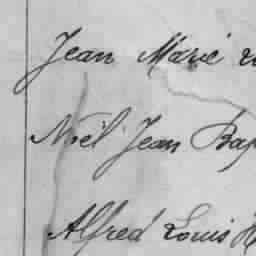 Jean Marie
Noël Jean Bap
Alfred Louis H